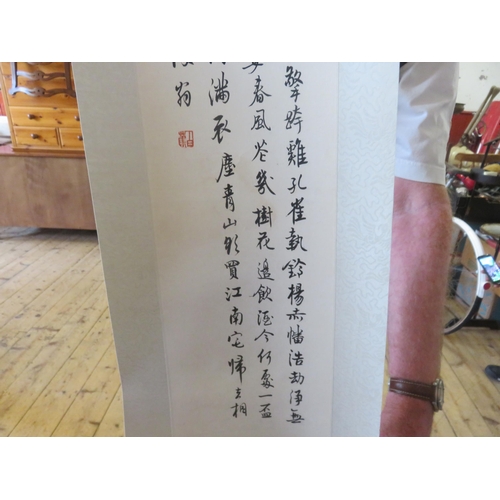 擎跨雞孔雀執鈴楊赤幡浩劫淨無
春風花幾樹花邊飲酒今何處一盃
滿衣塵青山欲買江南宅歸去相
翁